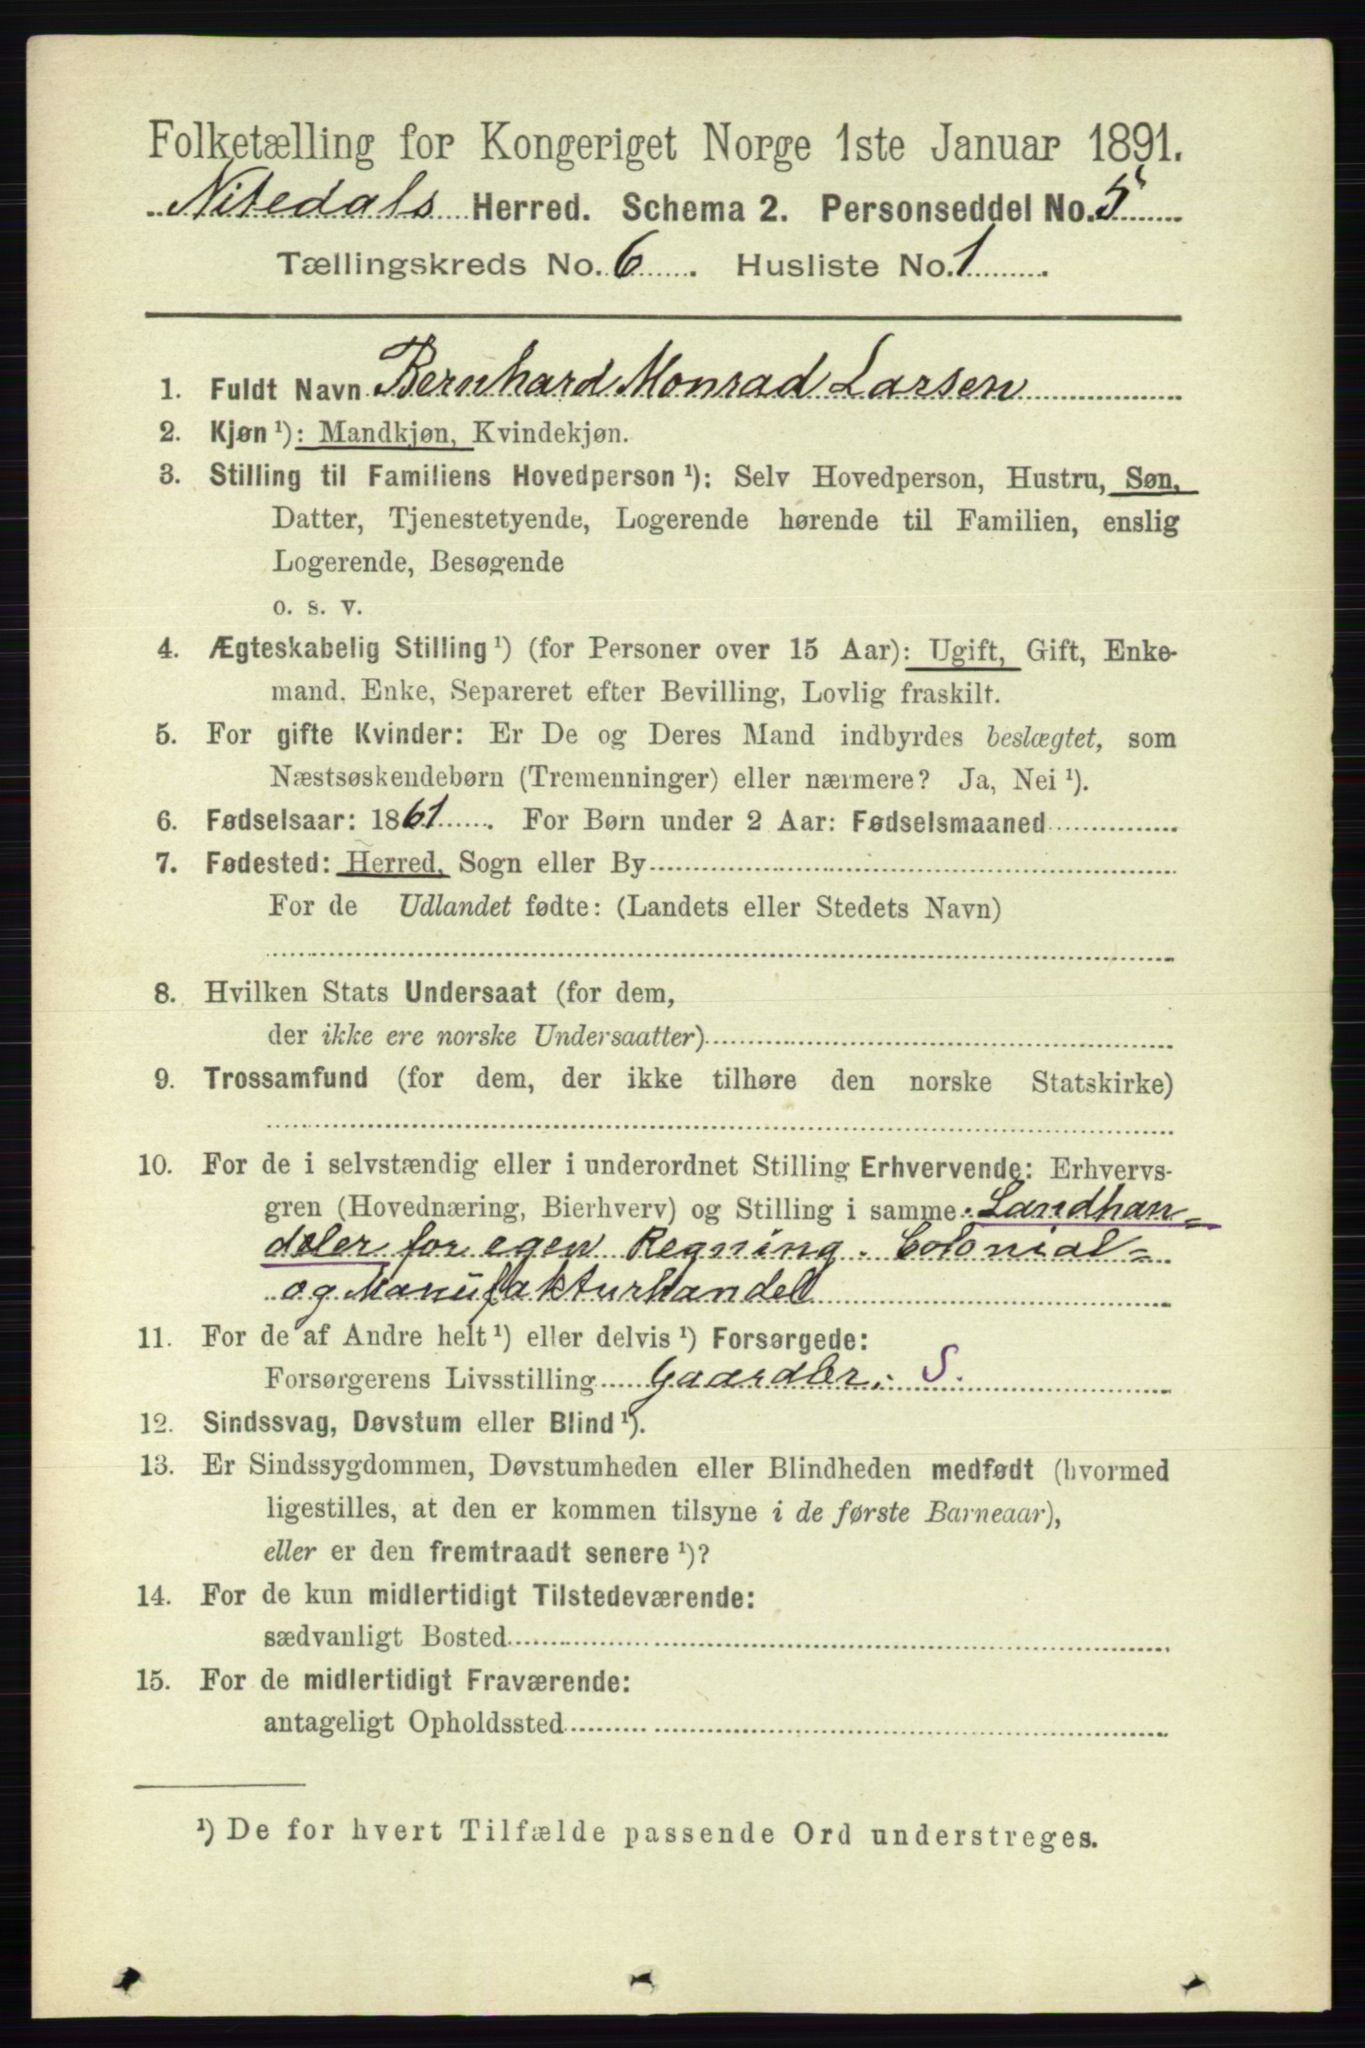 Folketælling for Kongeriget Norge 1ste Januar 1891.
Nitedals Herred. Schema 2. Personseddel No. 5
Tællingskreds No. 6 . Husliste No. 1 .
1. Fuldt Navn Bernhard Monrad Larsen
2. Kjøn ¹): Mandkjøn, Kvindekjøn.
3. Stilling til Familiens Hovedperson ¹): Selv Hovedperson, Hustru, Søn,
Datter, Tjenestetyende, Logerende hørende til Familien, enslig
Logerende, Besøgende
o. s. v.
4. Ægteskabelig Stilling ¹) (for Personer over 15 Aar): Ugift, Gift, Enke-
mand, Enke, Separeret efter Bevilling, Lovlig fraskilt.
5. For gifte Kvinder: Er De og Deres Mand indbyrdes beslægtet, som
Næstsøskendebørn (Tremenninger) eller nærmere? Ja, Nei ¹).
6. Fødselsaar: 1861 . For Børn under 2 Aar: Fødselsmaaned
7. Fødested: Herred, Sogn eller By
For de Udlandet fødte: (Landets eller Stedets Navn)
8. Hvilken Stats Undersaat (for dem,
der ikke ere norske Undersaatter)
9. Trossamfund (for dem, der ikke tilhøre den norske Statskirke)
10. For de i selvstændig eller i underordnet Stilling Erhvervende: Erhvervs-
gren (Hovednæring, Bierhverv) og Stilling i samme. Landhan-
dler for egen Regning. Colonial-
og Manufakturhandel
11. For de af Andre helt ¹) eller delvis ¹) Forsørgede:
Forsørgerens Livsstilling Gaardbr. S.
12. Sindssvag, Døvstum eller Blind ¹).
13. Er Sindssygdommen, Døvstumheden eller Blindheden medfødt (hvormed
ligestilles, at den er kommen tilsyne i de første Barneaar),
eller er den fremtraadt senere ¹)?
14. For de kun midlertidigt Tilstedeværende:
sædvanligt Bosted
15. For de midlertidigt Fraværende:
antageligt Opholdssted
¹) De for hvert Tilfælde passende Ord understreges.